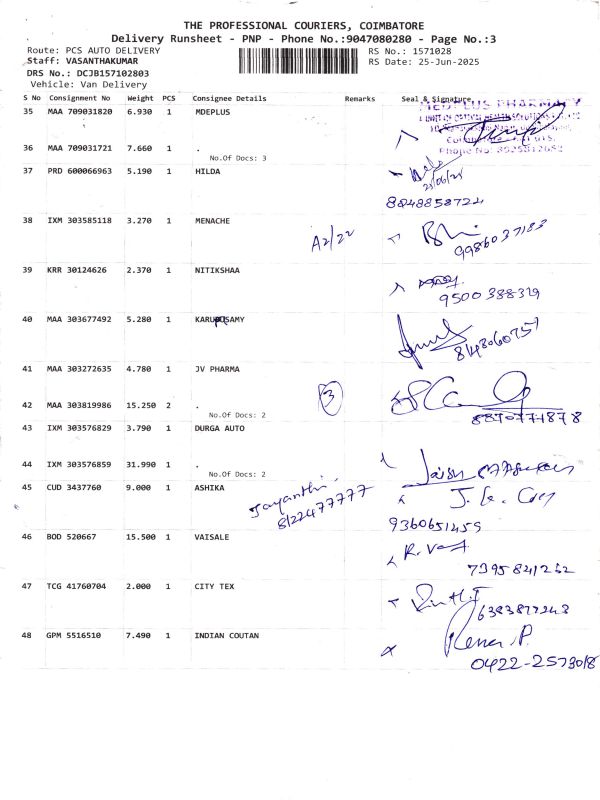 THE PROFESSIONAL COURIERS, COIMBATORE
Delivery Runsheet - PNP - Phone No.:9047080280 - Page No.:3
Route: PCS AUTO DELIVERY
RS No.: 1571028
Staff: VASANTHAKUMAR
RS Date: 25-Jun-2025
DRS No.: DCJB157102803
Vehicle: Van Delivery
S No Consignment No Weight PCS Consignee Details Remarks Seal & Signature
35 MAA 709031820 6.930 1 MDEPLUS
MEDPLUS PHARMACY
36 MAA 709031721 7.660 1 .
No.Of Docs: 3
Phone No:
37 PRD 600066963 5.190 1 HILDA
25/06/25
8248858722
38 IXM 303585118 3.270 1 MENACHE
A2/22
9986037183
39 KRR 30124626 2.370 1 NITIKSHAA
9500388319
40 MAA 303677492 5.280 1 KARUPPUSAMY
8148060757
41 MAA 303272635 4.780 1 JV PHARMA
3
42 MAA 303819986 15.250 2 .
No.Of Docs: 2
43 IXM 303576829 3.790 1 DURGA AUTO
44 IXM 303576859 31.990 1 .
No.Of Docs: 2
45 CUD 3437760 9.000 1 ASHIKA
Jayanthi
8122477777
9360651459
46 BOD 520667 15.500 1 VAISALE
7395841262
47 TCG 41760704 2.000 1 CITY TEX
6383877248
48 GPM 5516510 7.490 1 INDIAN COUTAN
0422-2573018